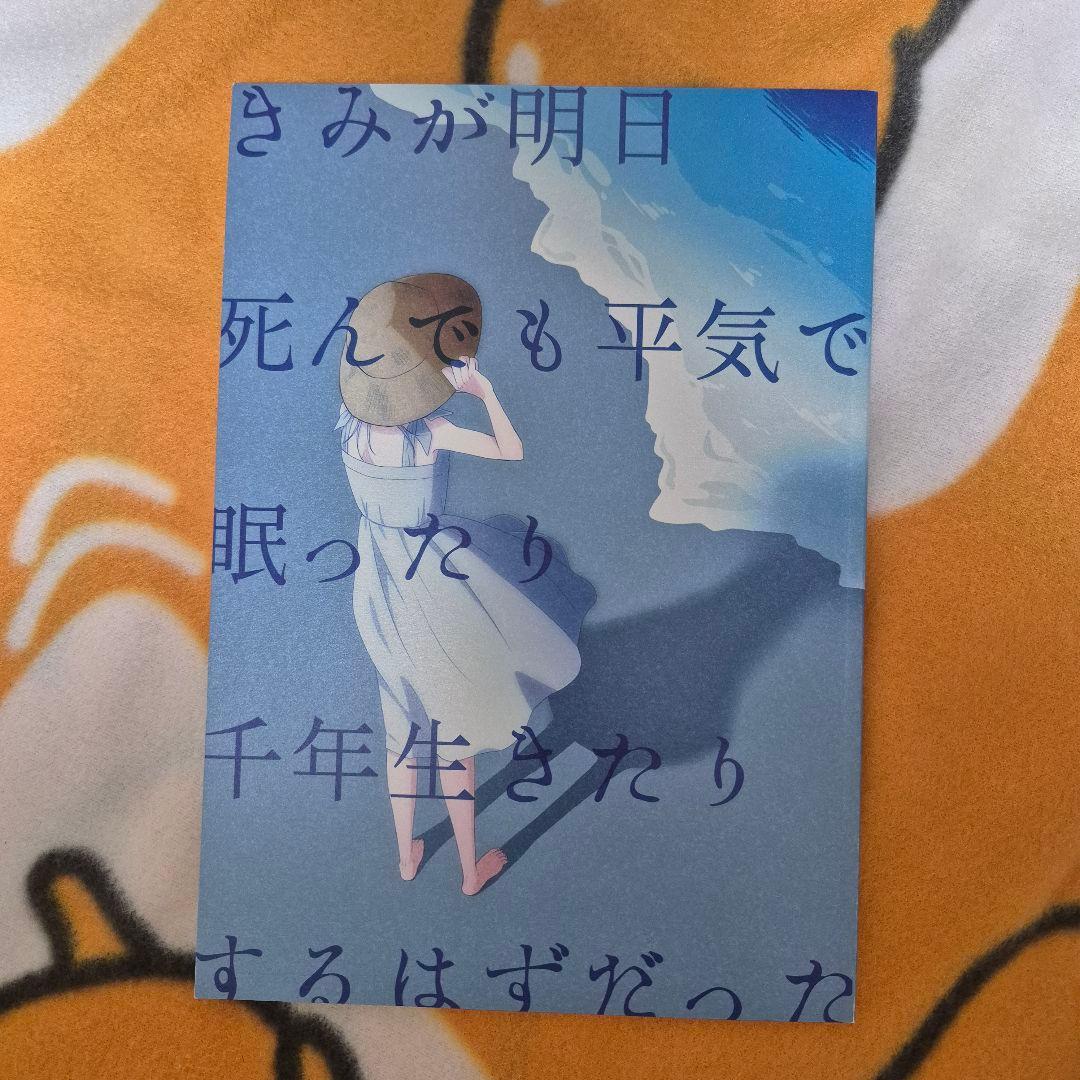 きみが明日
死んでも平気で
眠ったり
千年生きたり
するはずだった